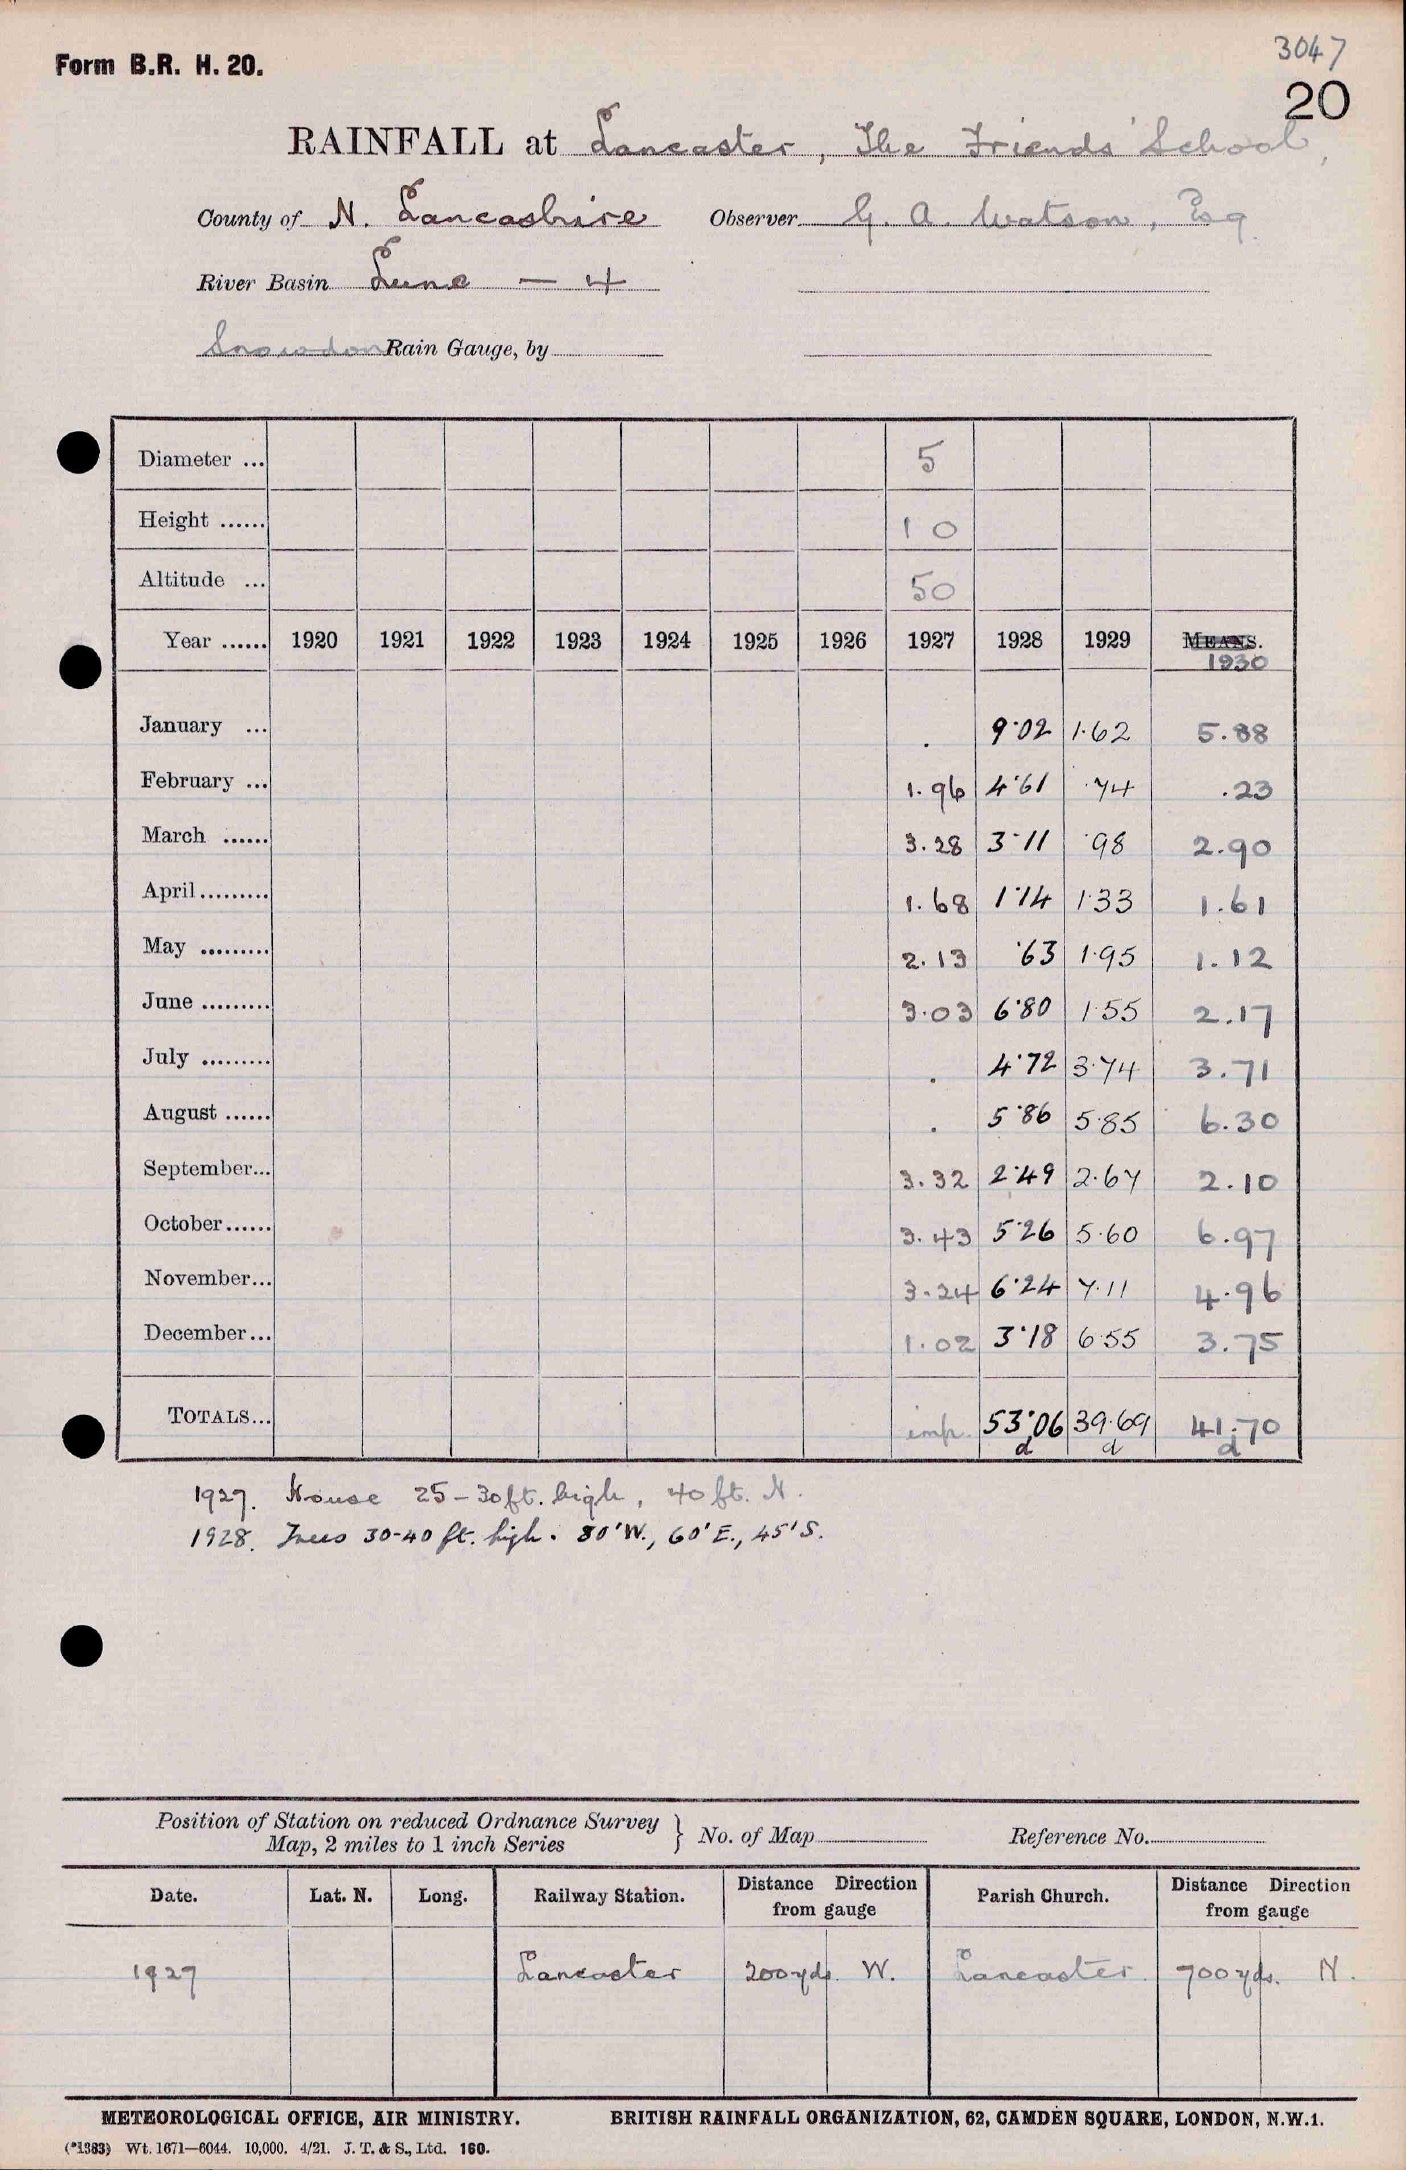 3047
Form B.R. H. 20.
20
RAINFALL at Lancaster, The Friends' School,
County of N. Lancashire Observer G. A. Watson, Esq.
River Basin Lune — 4
Snowdon Rain Gauge, by
Diameter ... 5
Height ...... 10
Altitude ... 50
Year ...... 1920 1921 1922 1923 1924 1925 1926 1927 1928 1929 MEANS.
1930
January ... . 9·02 1·62 5.88
February ... 1.96 4·61 ·74 .23
March ...... 3.28 3·11 ·98 2.90
April ......... 1.68 1·14 1·33 1.61
May ......... 2.13 ·63 1·95 1.12
June ......... 3.03 6·80 1·55 2.17
July ......... . 4·72 3·74 3.71
August ...... . 5·86 5·85 6.30
September... 3.32 2·49 2·67 2.10
October...... 3.43 5·26 5·60 6.97
November... 3.24 6·24 7·11 4.96
December... 1.02 3·18 6·55 3.75
TOTALS... imp. 53·06 39·69 41.70
d d d
1927. House 25-30ft. high, 40ft. N.
1928. Trees 30-40 ft. high. 80'W., 60'E., 45'S.
Position of Station on reduced Ordnance Survey
Map, 2 miles to 1 inch Series } No. of Map Reference No.
Date. Lat. N. Long. Railway Station. Distance Direction from gauge Parish Church. Distance Direction from gauge
1927 Lancaster 200yds. W. Lancaster. 700yds. N.
METEOROLOGICAL OFFICE, AIR MINISTRY. BRITISH RAINFALL ORGANIZATION, 62, CAMDEN SQUARE, LONDON, N.W.1.
(*1383) Wt. 1671—6044. 10,000. 4/21. J. T. & S., Ltd. 160.